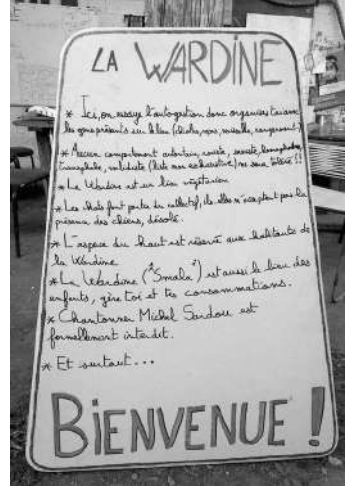 LA WARDINE
* Ici, on essaye l'autogestion donc organisez toi avec
les gens présents sur le lieu (vaisselle, rangement)
* Aucun comportement autoritaire, raciste, sexiste, homophobe,
transphobe, validiste (liste non exhaustive) ne sera toléré !!
* La Wardine est un lieu végétarien
* Les chats font partie du collectif, ils elles n'acceptent pas la
présence des chiens, désolé.
* L'espace du haut est réservé aux habitants de
la Wardine
* La Wardine ("Smala") est aussi le lieu des
enfants, gère toi et tes consommations.
* Chantonner Michel Sardou est
formellement interdit.
* Et surtout...
BIENVENUE !